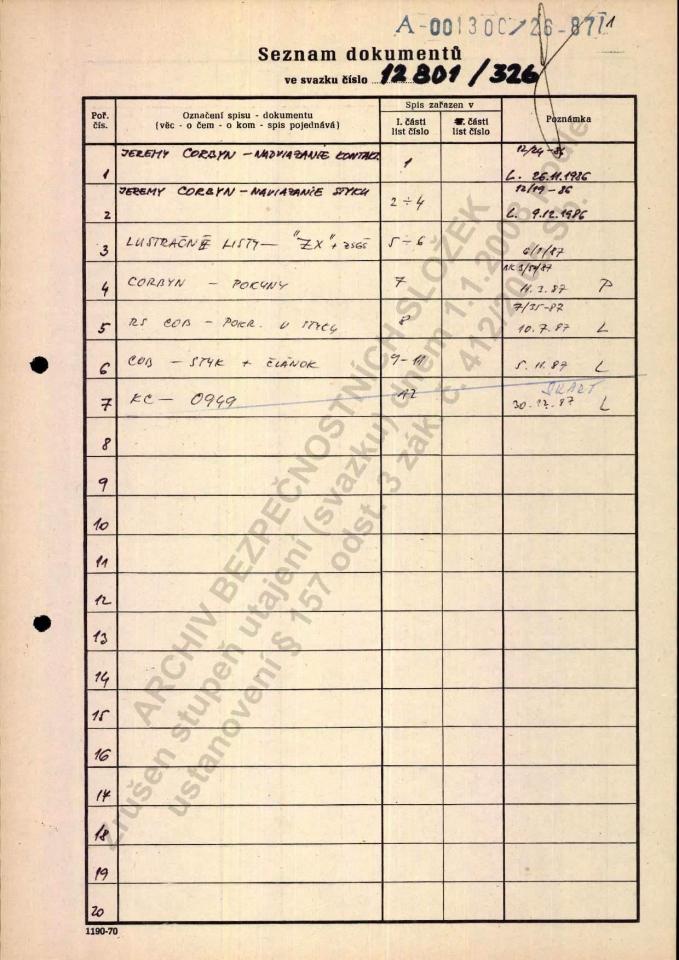 A-00130C/26-87 1
Seznam dokumentů
ve svazku číslo 12801/326
Poř. čís.
Označení spisu - dokumentu
(věc - o čem - o kom - spis pojednává)
Spis zařazen v
I. části list číslo
II. části list číslo
Poznámka
1 JEREMY CORBYN - NADVIAZANIE KONTAKT. 1 12/24-86
L. 26.11.1986
2 JEREMY CORBYN - NAVIAZANIE STYKU 2÷4 12/19-86
L. 9.12.1986
3 LUSTRAČNÉ LISTY - "ZX" + ZSGŠ 5-6 6/1/87
4 CORBYN - POKYNY 7 3/54/87
11.3.87 P
5 RS COB - POKR. V STYKU 8 7/35-87
10.7.87 L
6 COB - STYK + ČLÁNOK 9-11 5.11.87 L
7 KC - 0949 12 SKART
30.12.87 L
8
9
10
11
12
13
14
15
16
17
18
19
20
1190-70
ARCHIV BEZPEČNOSTNÍCH SLOŽEK
Zrušen stupeň utajení (svazku) dnem 1.1.2008 podle
ustanovení § 157 odst. 3 zák. č. 412/2005 Sb.